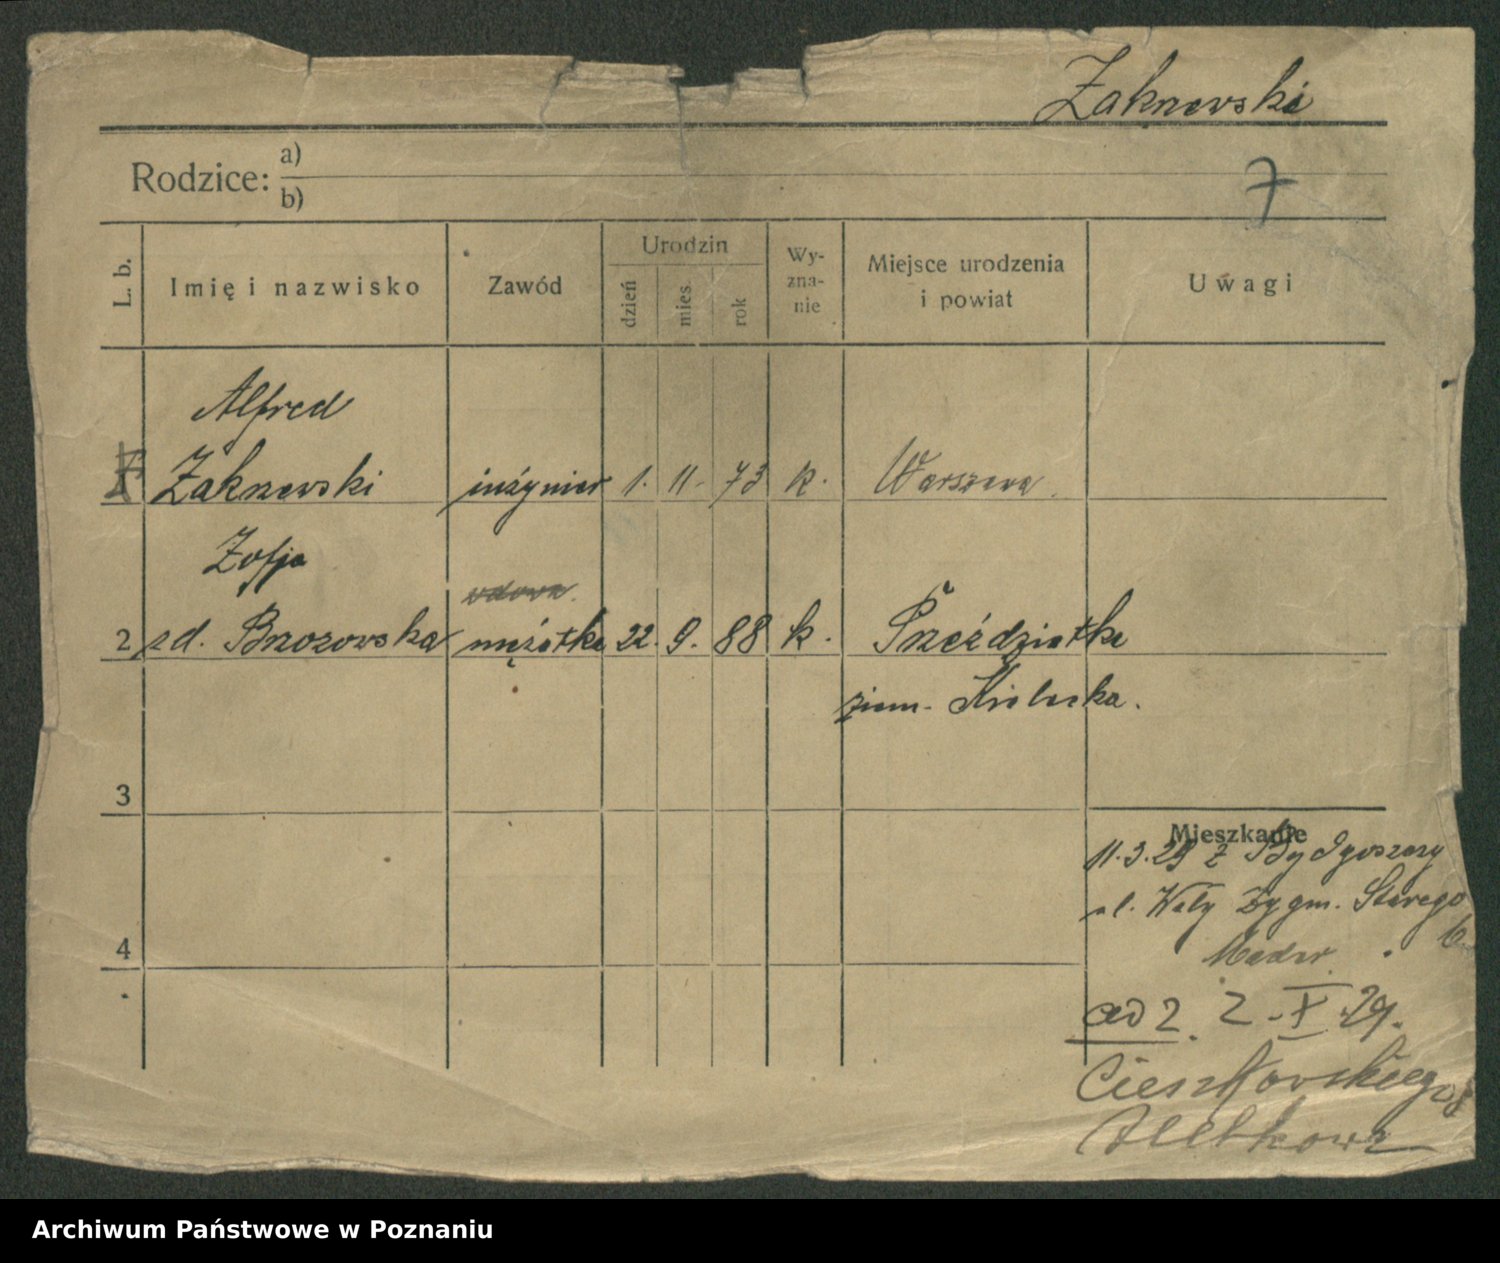 Żaknewski
7
Rodzice: a)
b)
L. b.
Imię i nazwisko
Zawód
Urodzin
dzień
mies.
rok
Wy-
zna-
nie
Miejsce urodzenia
i powiat
Uwagi
Alfred
Żaknewski inżynier 1. 11. 73 k. Warszawa
Zofja
wdowa
2 zd. Brzozowska mężatka 22. 9. 88 k. Przeździatka
ziem. Kielecka.
3
4
Mieszkanie
11.3.29 z Bydgoszczy
ul. Wały Zygm. Starego
ad 2. 2-X-29.
Cieszkowskiego 8